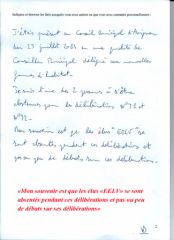 Indiquez et décrivez les faits auxquels vous avez assisté ou que vous avez constatés personnellement :
J'étais présent au Conseil Municipal d'Avignon
du 27 juillet 2021 en ma qualité de
Conseiller Municipal délégué aux nouvelles
formes d'habitat.
Je suis l'une des 2 personnes à m'être
abstenues pour les délibérations N°
et N°
Mon souvenir est que les élus "EELV" se
sont absentés pendant ces délibérations et
pas eu peu de débats sur ces délibérations.
«Mon souvenir est que les élus «EELV» se sont
absentés pendant ces délibérations et pas eu peu
de débats sur ses délibérations»
2